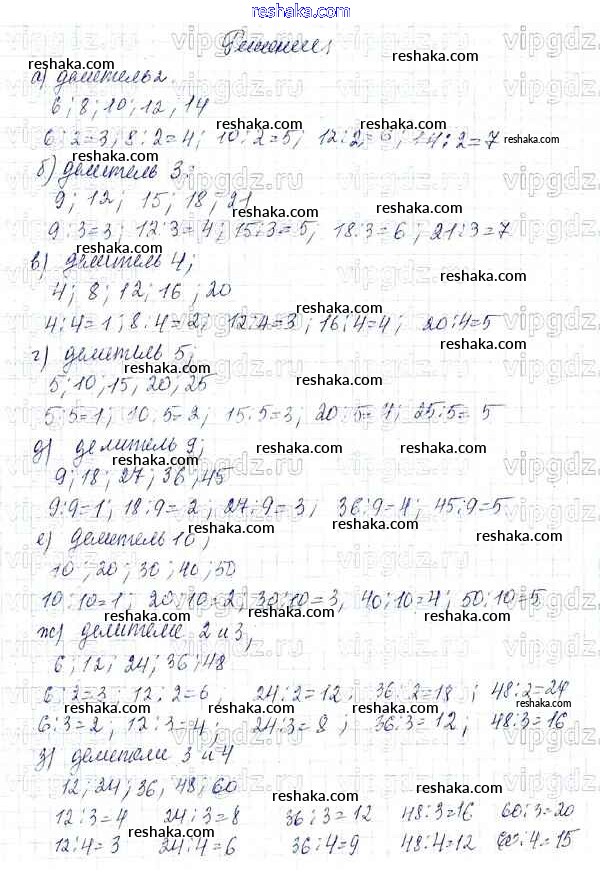 reshaka.com
Решение
а) делитель 2.
6; 8; 10; 12; 14
6:2=3; 8:2=4; 10:2=5; 12:2=6; 14:2=7
б) делитель 3:
9; 12; 15; 18; 21
9:3=3; 12:3=4; 15:3=5, 18:3=6; 21:3=7
в) делитель 4;
4; 8; 12; 16; 20
4:4=1; 8:4=2; 12:4=3; 16:4=4; 20:4=5
г) делитель 5;
5; 10; 15, 20; 25
5:5=1; 10:5=2; 15:5=3; 20:5=4; 25:5=5
д) делитель 9;
9; 18; 27; 36; 45
9:9=1; 18:9=2; 27:9=3; 36:9=4; 45:9=5
е) делитель 10;
10; 20; 30; 40; 50
10:10=1; 20:10=2; 30:10=3, 40:10=4; 50:10=5
ж) делители 2 и 3,
6; 12; 24; 36; 48
6:2=3; 12:2=6; 24:2=12; 36:2=18; 48:2=24
6:3=2, 12:3=4; 24:3=8; 36:3=12; 48:3=16
з) делители 3 и 4
12; 24; 36, 48; 60
12:3=4 24:3=8 36:3=12 48:3=16 60:3=20
12:4=3 24:4=6 36:4=9 48:4=12 60:4=15